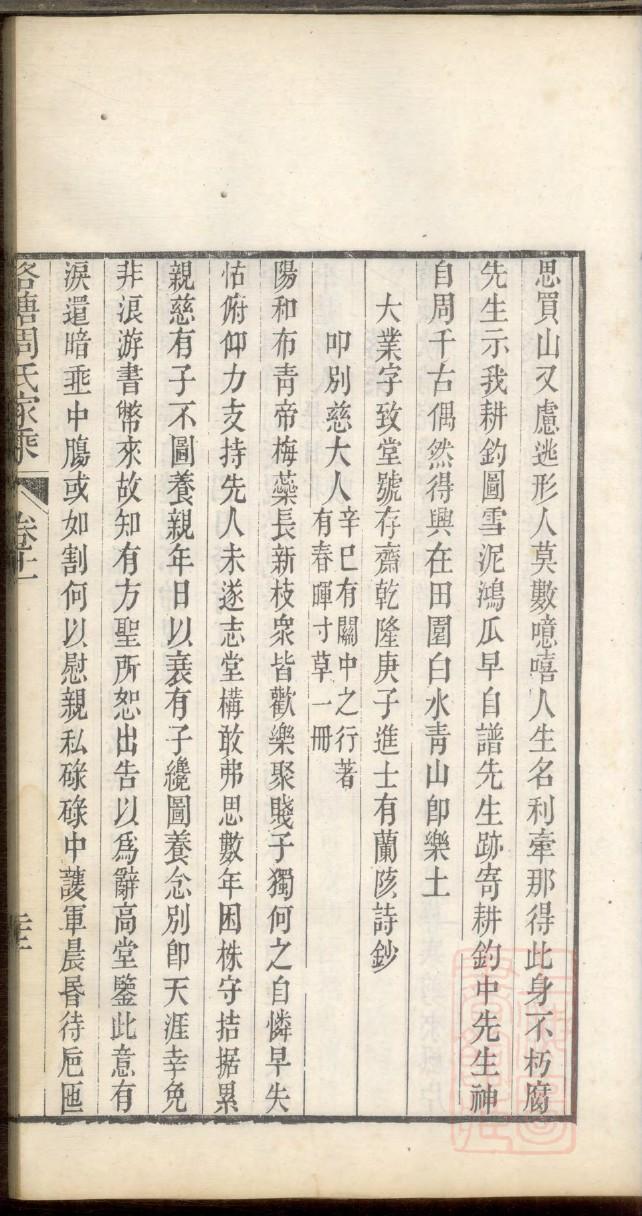 思買山又慮逃形人莫數噫嘻人生名利牽那得此身不朽腐
先生示我耕釣圖雪泥鴻瓜早自譜先生跡寄耕釣中先生神
自周千古偶然得興在田園白水青山卽樂土
大業字致堂號存齋乾隆庚子進士有蘭陔詩鈔
叩別慈大人辛巳有關中之行著
有春暉寸草一冊
陽和布青帝梅蘂長新枝衆皆歡樂聚賤子獨何之自憐早失
怙俯仰力支持先人未遂志堂構敢弗思數年困株守拮据累
親慈有子不圖養親年日以衰有子纔圖養忩別卽天涯幸免
非浪游書幣來故知有方聖所恕出告以爲辭高堂鑒此意有
淚還暗乖中膓或如割何以慰親私碌碌中護軍晨昬待巵匜
洛塘周氏家乘
卷十一